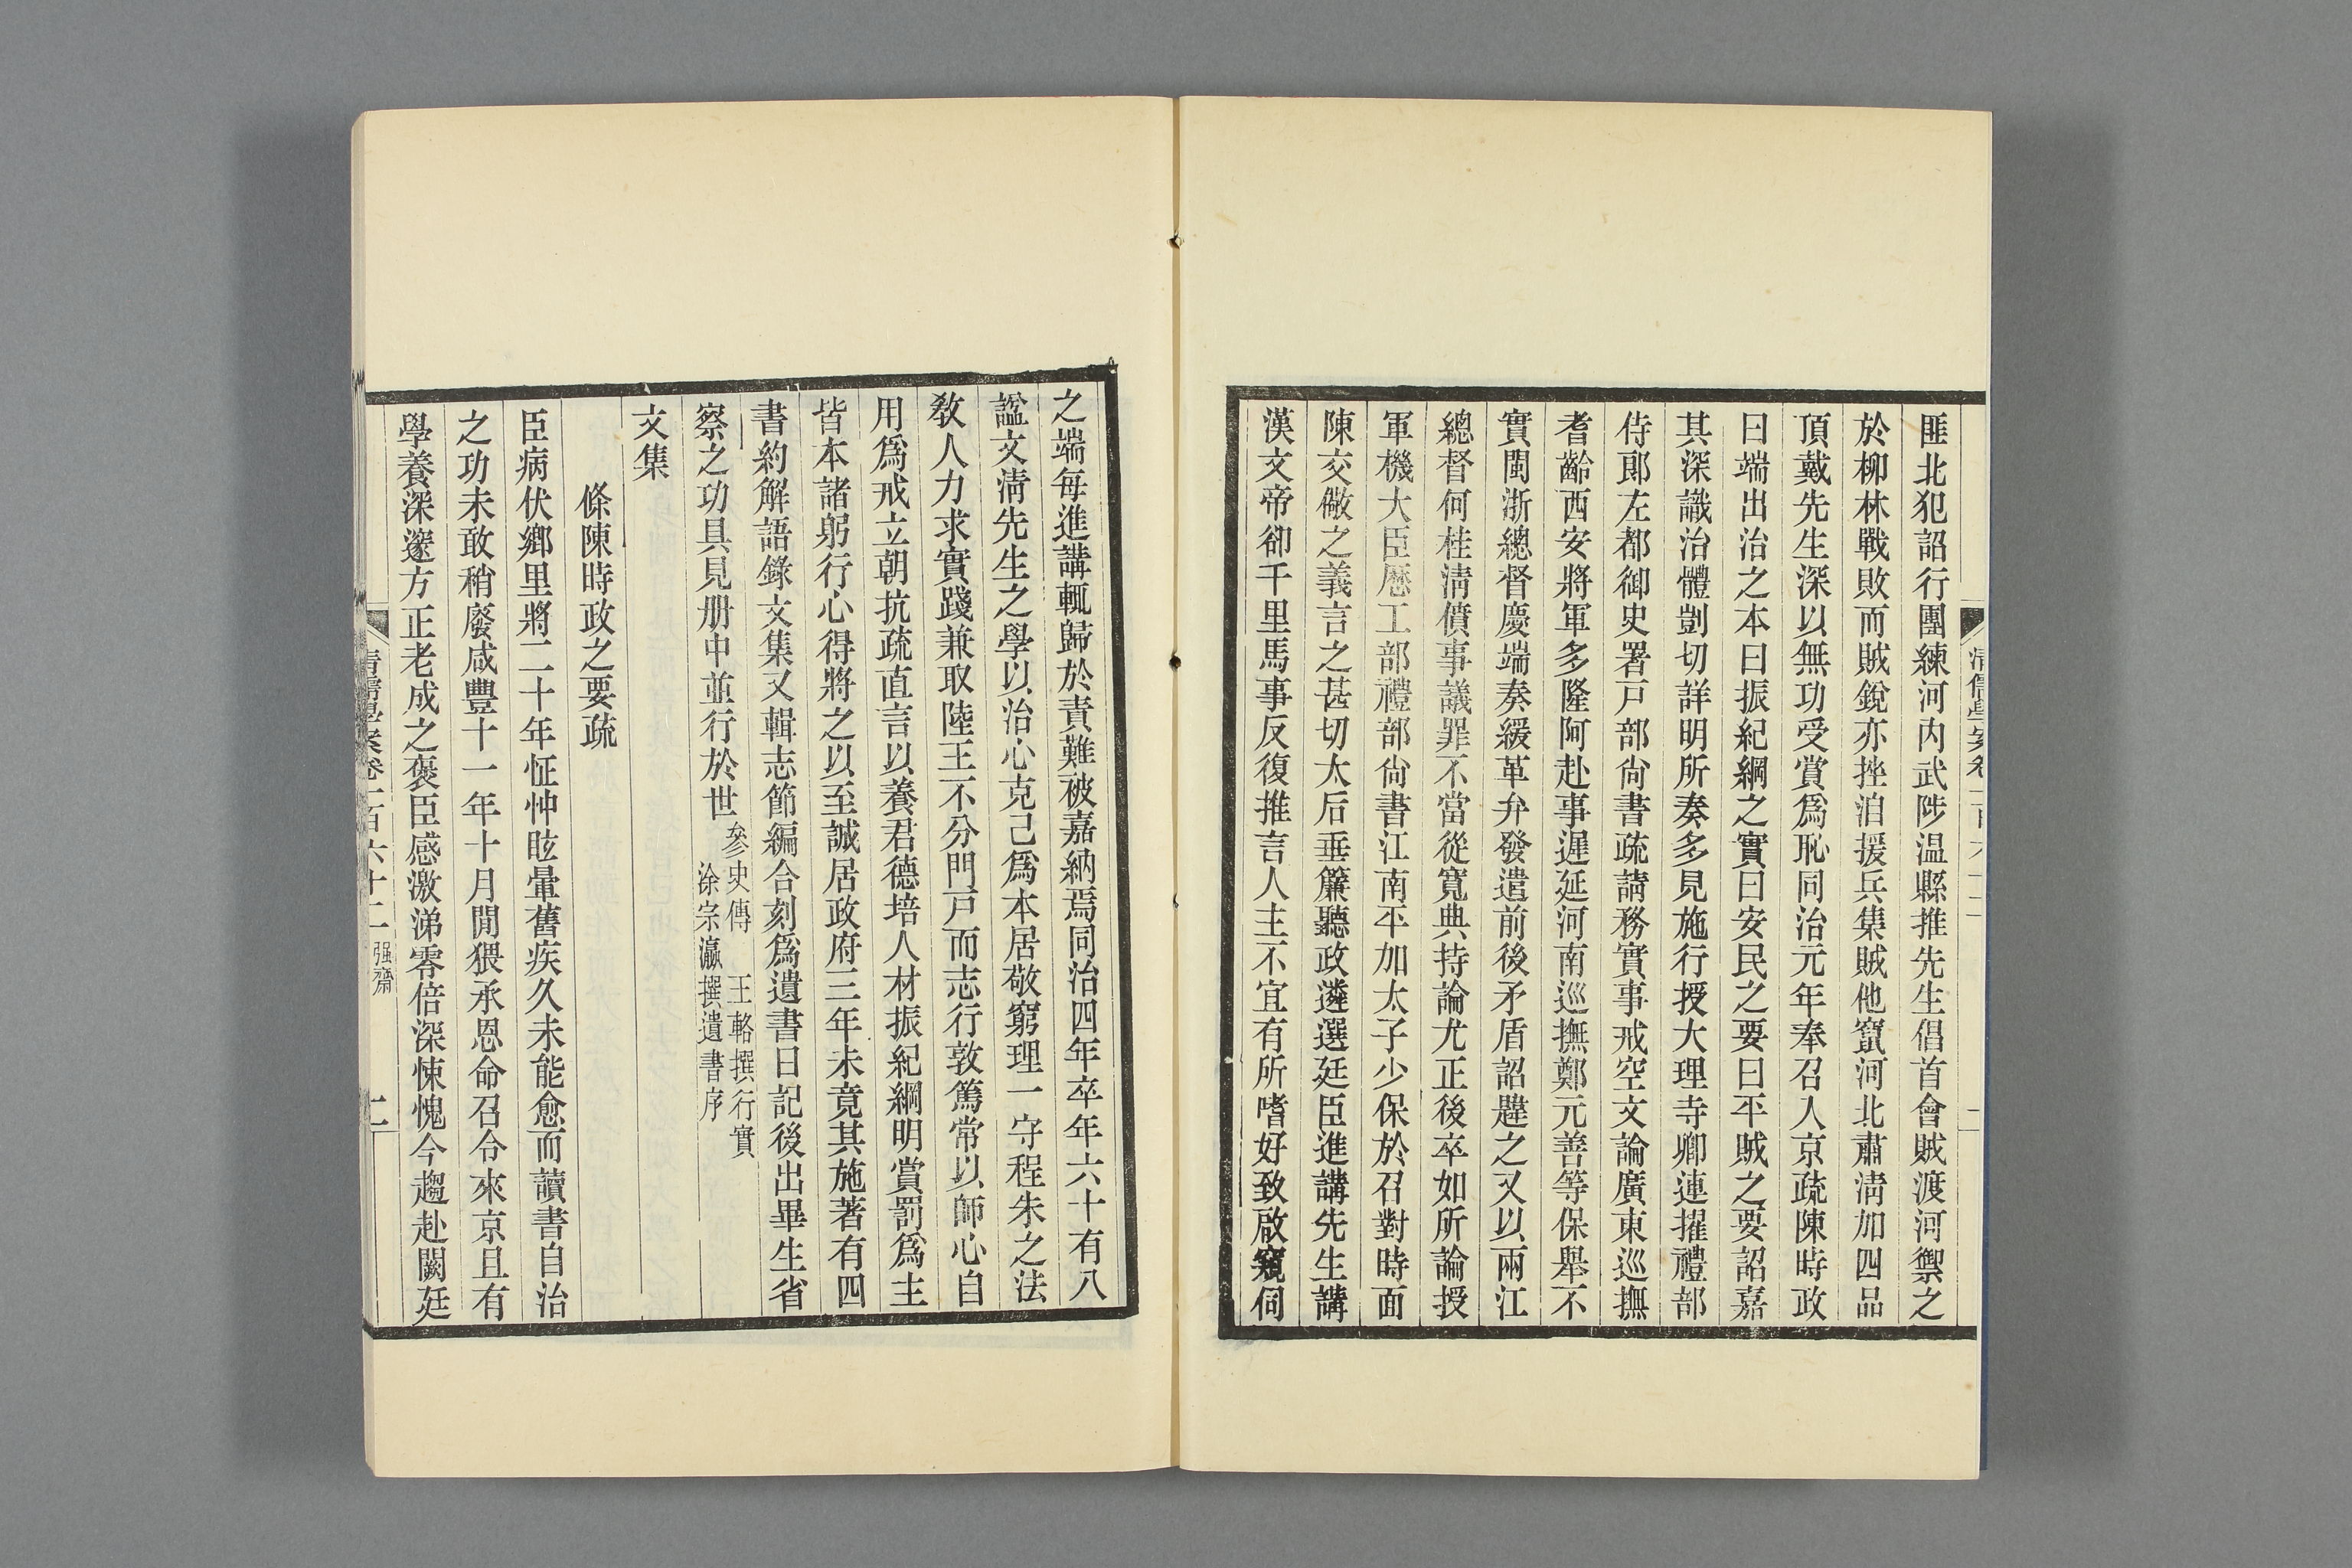 匪北犯詔行團練河內武陟温縣推先生倡首會賊渡河禦之
於柳林戰敗而賊銳亦挫洎援兵集賊他竄河北肅淸加四品
頂戴先生深以無功受賞爲恥同治元年奉召入京疏陳時政
曰端出治之本曰振紀綱之實曰安民之要曰平賊之要詔嘉
其深識治體剴切詳明所奏多見施行授大理寺卿連擢禮部
侍郎左都御史署戸部尙書疏請務實事戒空文論廣東巡撫
耆齡西安將軍多隆阿赴事遲延河南巡撫鄭元善等保舉不
實閩浙總督慶端奏緩革弁發遣前後矛盾詔韙之又以兩江
總督何桂淸僨事議罪不當從寬典持論尤正後卒如所論授
軍機大臣歷工部禮部尙書江南平加太子少保於召對時面
陳交儆之義言之甚切太后垂簾聽政遴選廷臣進講先生講
漢文帝卻千里馬事反復推言人主不宜有所嗜好致啟窺伺
之端每進講輒歸於責難被嘉納焉同治四年卒年六十有八
諡文淸先生之學以治心克己爲本居敬窮理一守程朱之法
敎人力求實踐兼取陸王不分門戸而志行敦篤常以師心自
用爲戒立朝抗疏直言以養君德培人材振紀綱明賞罰爲主
皆本諸躬行心得將之以至誠居政府三年未竟其施著有四
書約解語錄文集又輯志節編合刻爲遺書日記後出畢生省
察之功具見册中並行於世參史傳 王輅撰行實
涂宗瀛撰遺書序
文集
條陳時政之要疏
臣病伏鄉里將二十年怔忡眩暈舊疾久未能愈而讀書自治
之功未敢稍廢咸豐十一年十月閒猥承恩命召令來京且有
學養深邃方正老成之褒臣感激涕零倍深悚愧今趨赴闕廷
淸儒學案卷一百六十二 强齋 二